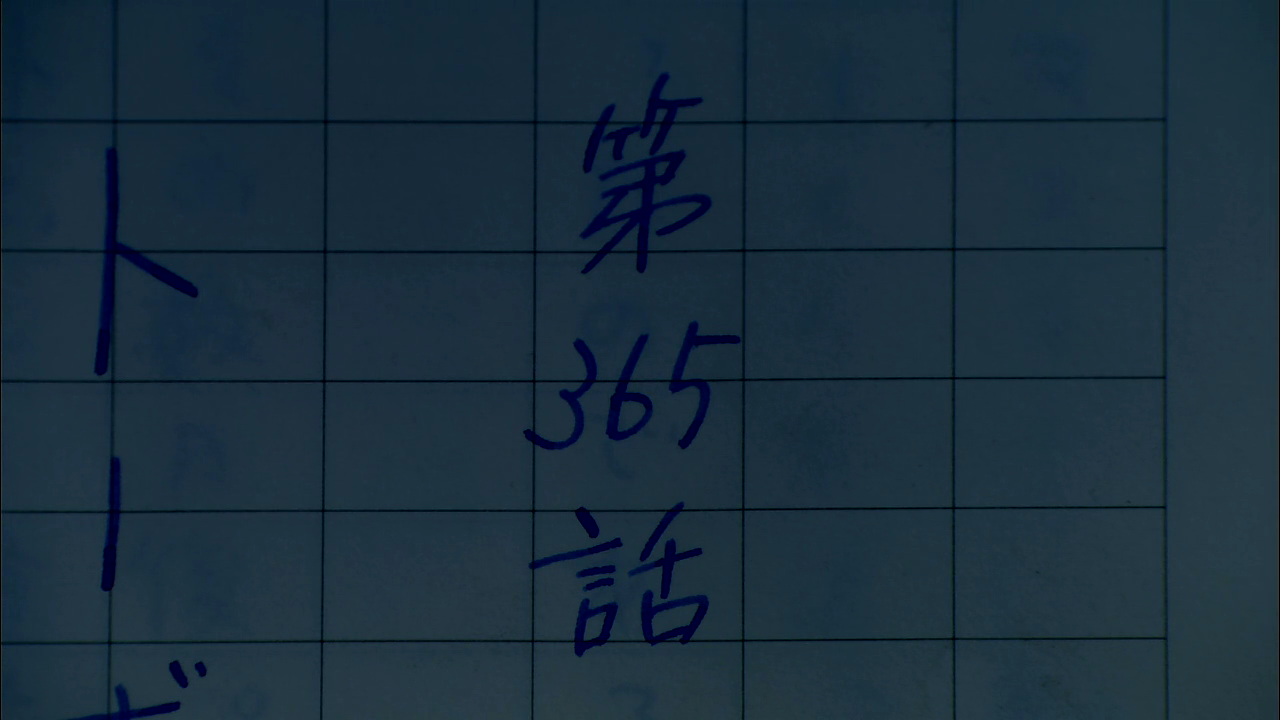 第365話
トー